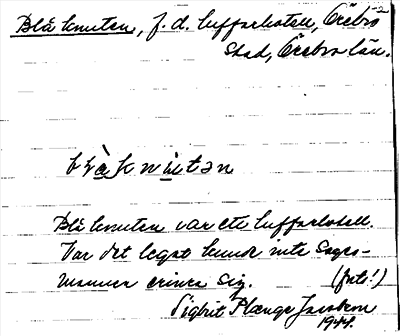 Blå knuten, f. d. luffarhotell, Örebro
stad, Örebro län.
Blå knuten var ett luffarhotell.
Var det legat kunde inte sages-
mannen erinra sig. (foto!)
Sigbrit Plænge Jacobson
1944.